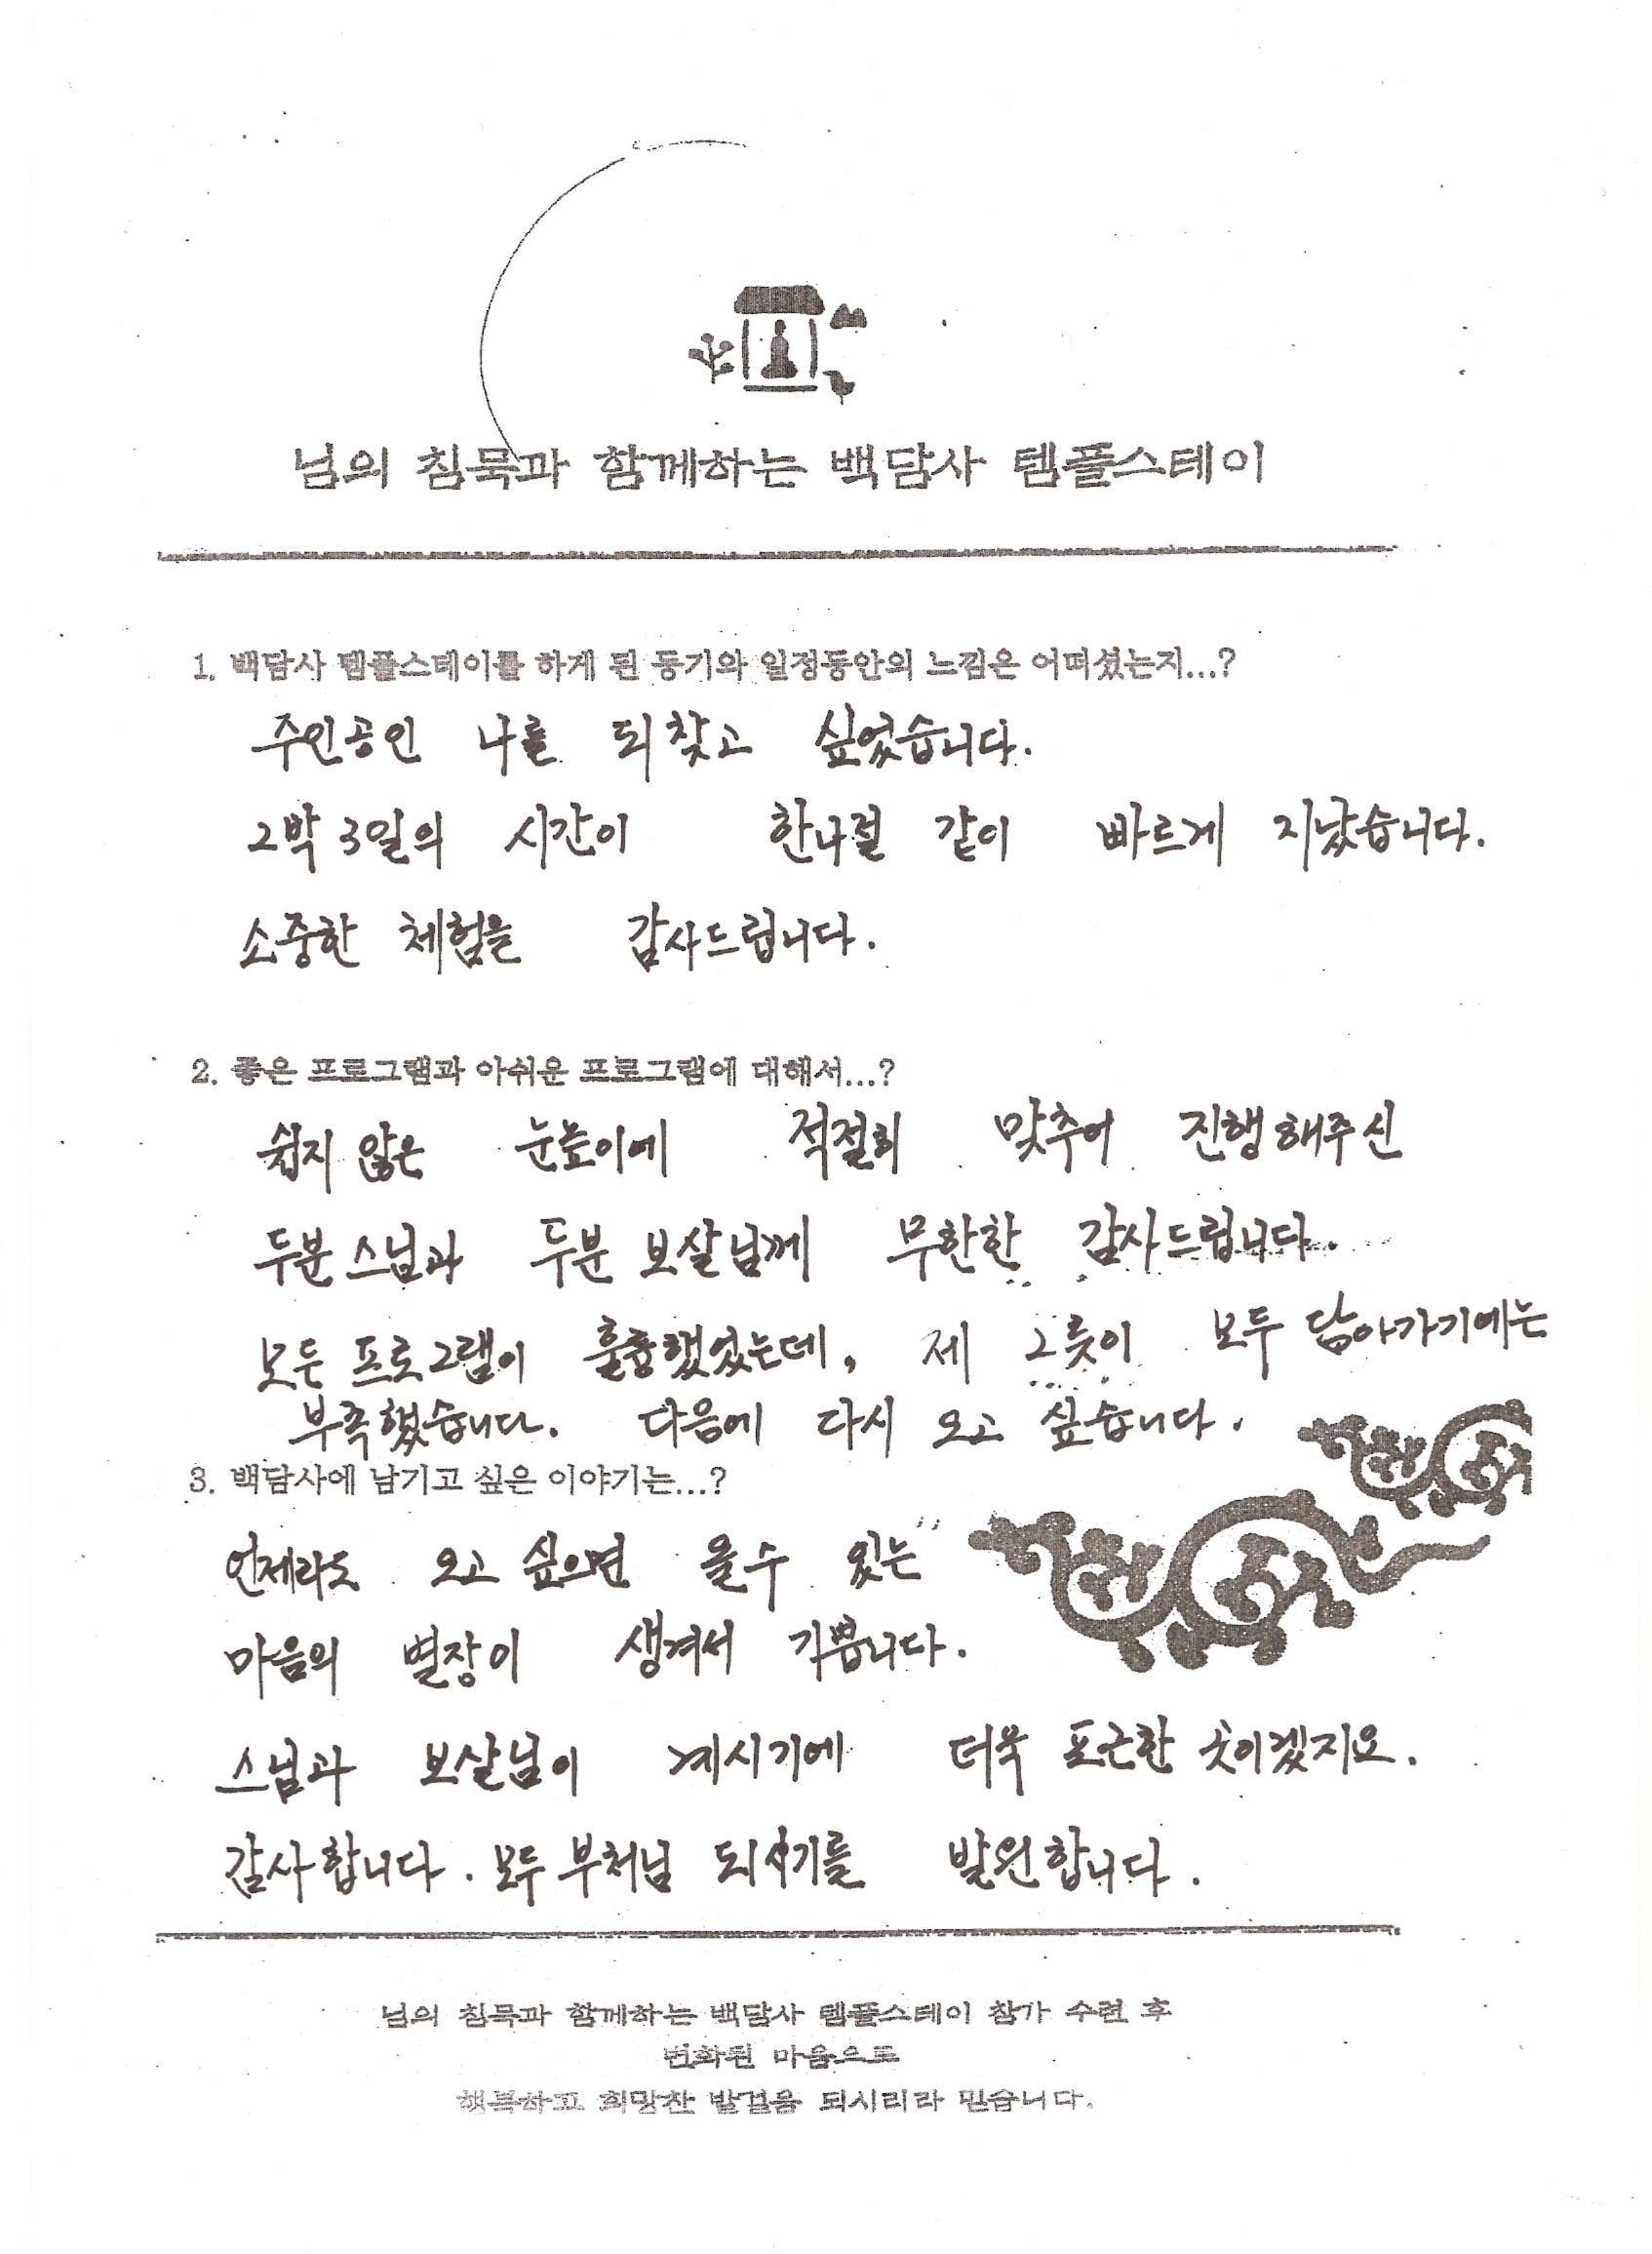 님의 침묵과 함께하는 백담사 템플스테이
1. 백담사 템플스테이를 하게 된 동기와 일정동안의 느낌은 어떠셨는지...?
주인공인 나를 되찾고 싶었습니다.
2박 3일의 시간이 한나절 같이 빠르게 지났습니다.
소중한 체험을 감사드립니다.
2. 좋은 프로그램과 아쉬운 프로그램에 대해서...?
쉽지 않은 눈높이에 적절히 맞추어 진행해주신
두분 스님과 두분 보살님께 무한한 감사드립니다.
모든 프로그램이 훌륭했었는데, 제 그릇이 모두 담아가기에는
부족했습니다. 다음에 다시 오고 싶습니다.
3. 백담사에 남기고 싶은 이야기는...?
언제라도 오고 싶으면 올수 있는
마음의 별장이 생겨서 기쁩니다.
스님과 보살님이 계시기에 더욱 포근한 곳이겠지요.
감사합니다. 모두 부처님 되시기를 발원합니다.
님의 침묵과 함께하는 백담사 템플스테이 참가 수련 후
변화된 마음으로
행복하고 희망찬 발걸음 되시리라 믿습니다.